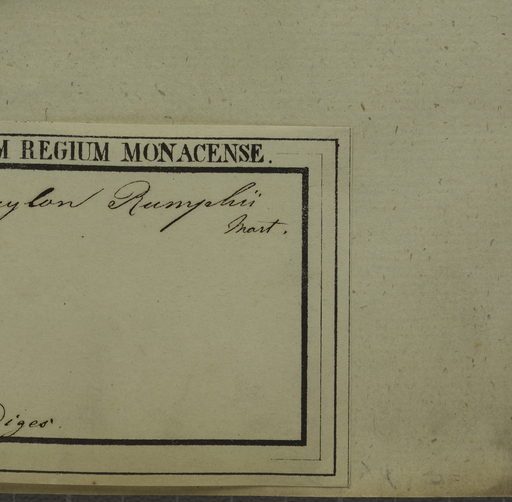 M REGIUM MONACENSE.
ylon Rumphii
Mart.